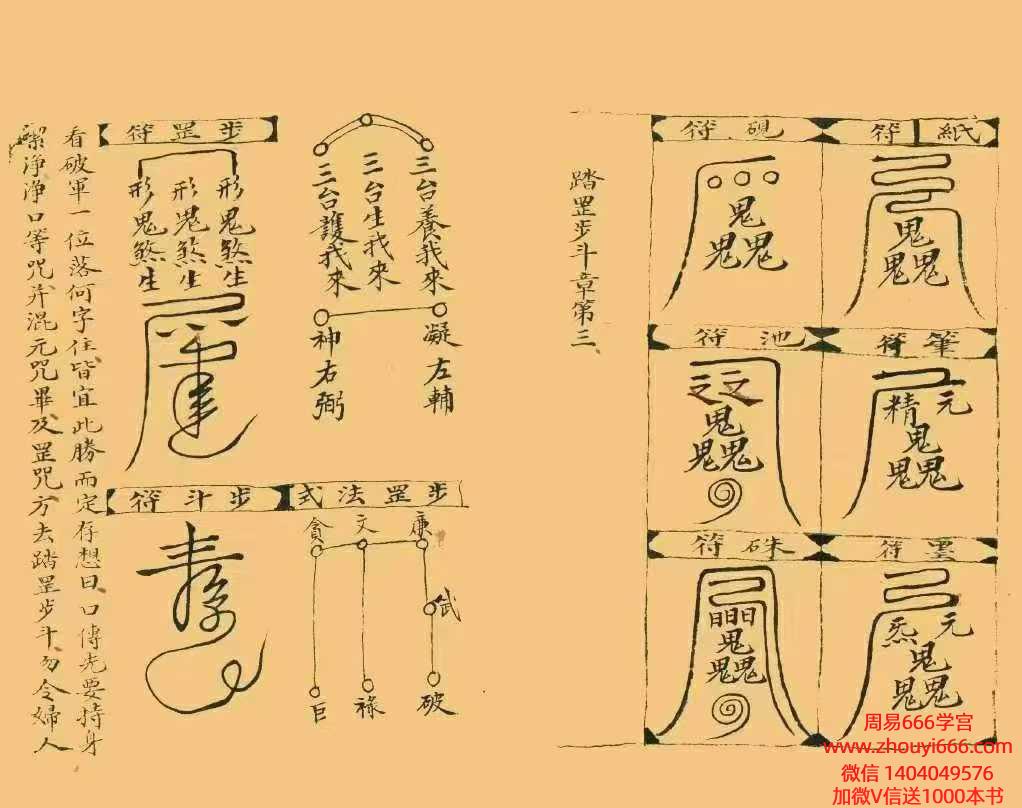 紙符
鬼
鬼鬼
筆符
元
精
鬼
鬼鬼
墨符
元
炁
鬼
鬼鬼
硯符
鬼
鬼鬼
池符
鬼
鬼鬼
硃符
鬼
鬼鬼
踏罡步斗章第三
三台養我來
三台生我來
三台護我來
凝左輔
神右弼
步罡法式
廉
文
貪
武
破
祿
巨
步罡符
形鬼煞生
形鬼煞生
形鬼煞生
步斗符
看破軍一位落何字住皆宜此勝而定存想曰口傳先要持身
潔淨淨口等咒并混元咒畢及罡咒方去踏罡步斗勿令婦人
周易666学宫
www.zhouyi666.com
微信 1404049576
加微V信送1000本书